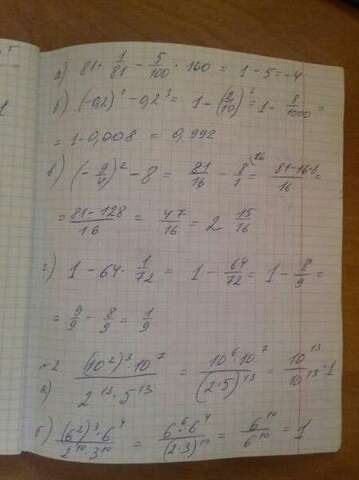 а) 81 · 1/81 − 5/100 · 100 = 1 − 5 = −4
б) (−0,2)⁰ − 0,2³ = 1 − (2/10)³ = 1 − 8/1000 =
= 1 − 0,008 = 0,992
в) (−9/4)² − 8 = 81/16 − 8/1 (16 = 81−16·8/16 =
= 81−128/16 = 47/16 = 2 15/16
г) 1 − 64 · 1/72 = 1 − 64/72 = 1 − 8/9 =
= 9/9 − 8/9 = 1/9
№2
а) (10²)³·10⁷/2¹³·5¹³ = 10⁶·10⁷/(2·5)¹³ = 10¹³/10¹³ = 1
б) (6²)³·6⁴/2¹⁰·3¹⁰ = 6⁶·6⁴/(2·3)¹⁰ = 6¹⁰/6¹⁰ = 1